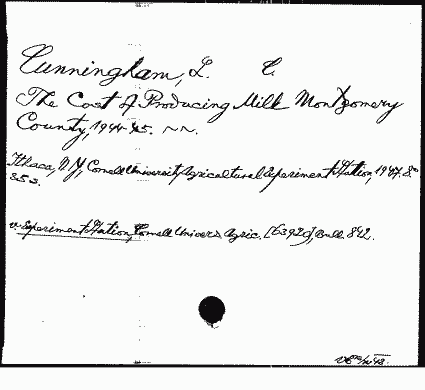 Cunningham, L. C.
The Cost of Producing Milk Montgomery
County, 1944-45. ~~.
Ithaca, N.Y., Cornell University Agricultural Experiment Station, 1947. 8°
35 s.
v. Experiment Station, Cornell Univers. Agric. [6392g], Bull. 842.